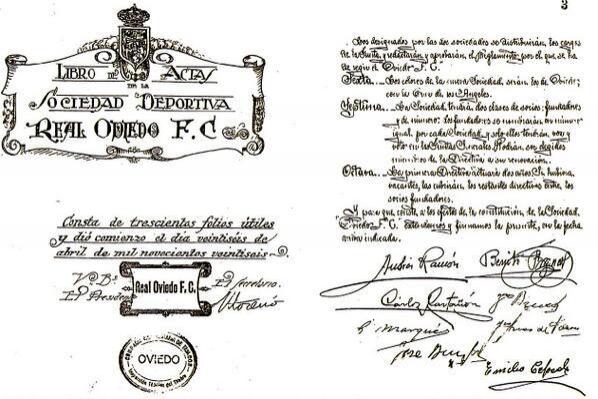 LIBRO DE ACTAS
DE LA
SOCIEDAD DEPORTIVA
REAL OVIEDO F.C.
Consta de trescientos folios útiles
y dió comienzo el día veintiséis de
abril de mil novecientos veintiseis
V.º B.º
El Presidente
Real Oviedo F.C.
El Secretario
OVIEDO
3
Los designados por las dos sociedades se distribuirán los cargos
de la Junta, redactarán y aprobarán el Reglamento por el que se ha
de regir el Oviedo F. C.
Sexta.- Los colores de la nueva Sociedad, serán los de Oviedo;
con la Cruz de los Angeles.
Septima.- La Sociedad tendrá dos clases de socios: fundadores
y de número; los fundadores se nombrarán en número
igual por cada Sociedad y solo ellos tendrán voz y
voto en las Juntas Generales. Podrán ser elegidos
miembros de la Directiva a su renovación.
Octava.- La primera Directiva actuará dos años. Si hubiera
vacantes, las cubrirán los restantes directivos entre los
socios fundadores.
Y para que conste a los efectos de la constitución de la Sociedad
"Oviedo F. C." extendemos y firmamos la presente, en la fecha
arriba indicada.
Ramón
Benito
Carlos
Marqués
José
Emilio